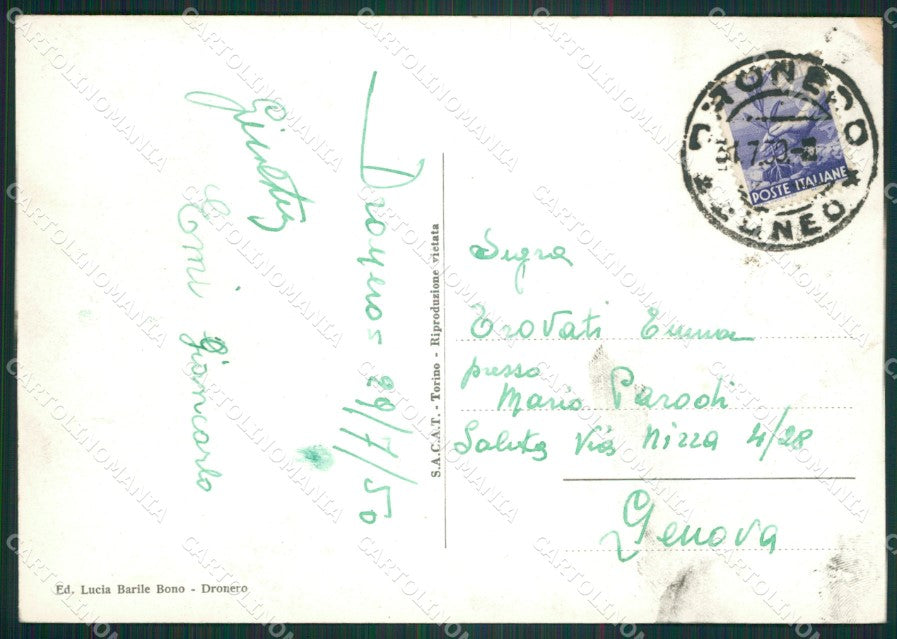 Dronero 29/7/50
Ginetta
Emi Giancarlo
S.A.C.A.T. - Torino - Riproduzione vietata
Ed. Lucia Barile Bono - Dronero
DRONERO
7.50
CUNEO
POSTE ITALIANE
Sigra
Trovati Emma
presso
Mario Parodi
Salita Via Nizza 4/28
Genova
CARTOLINOMANIA